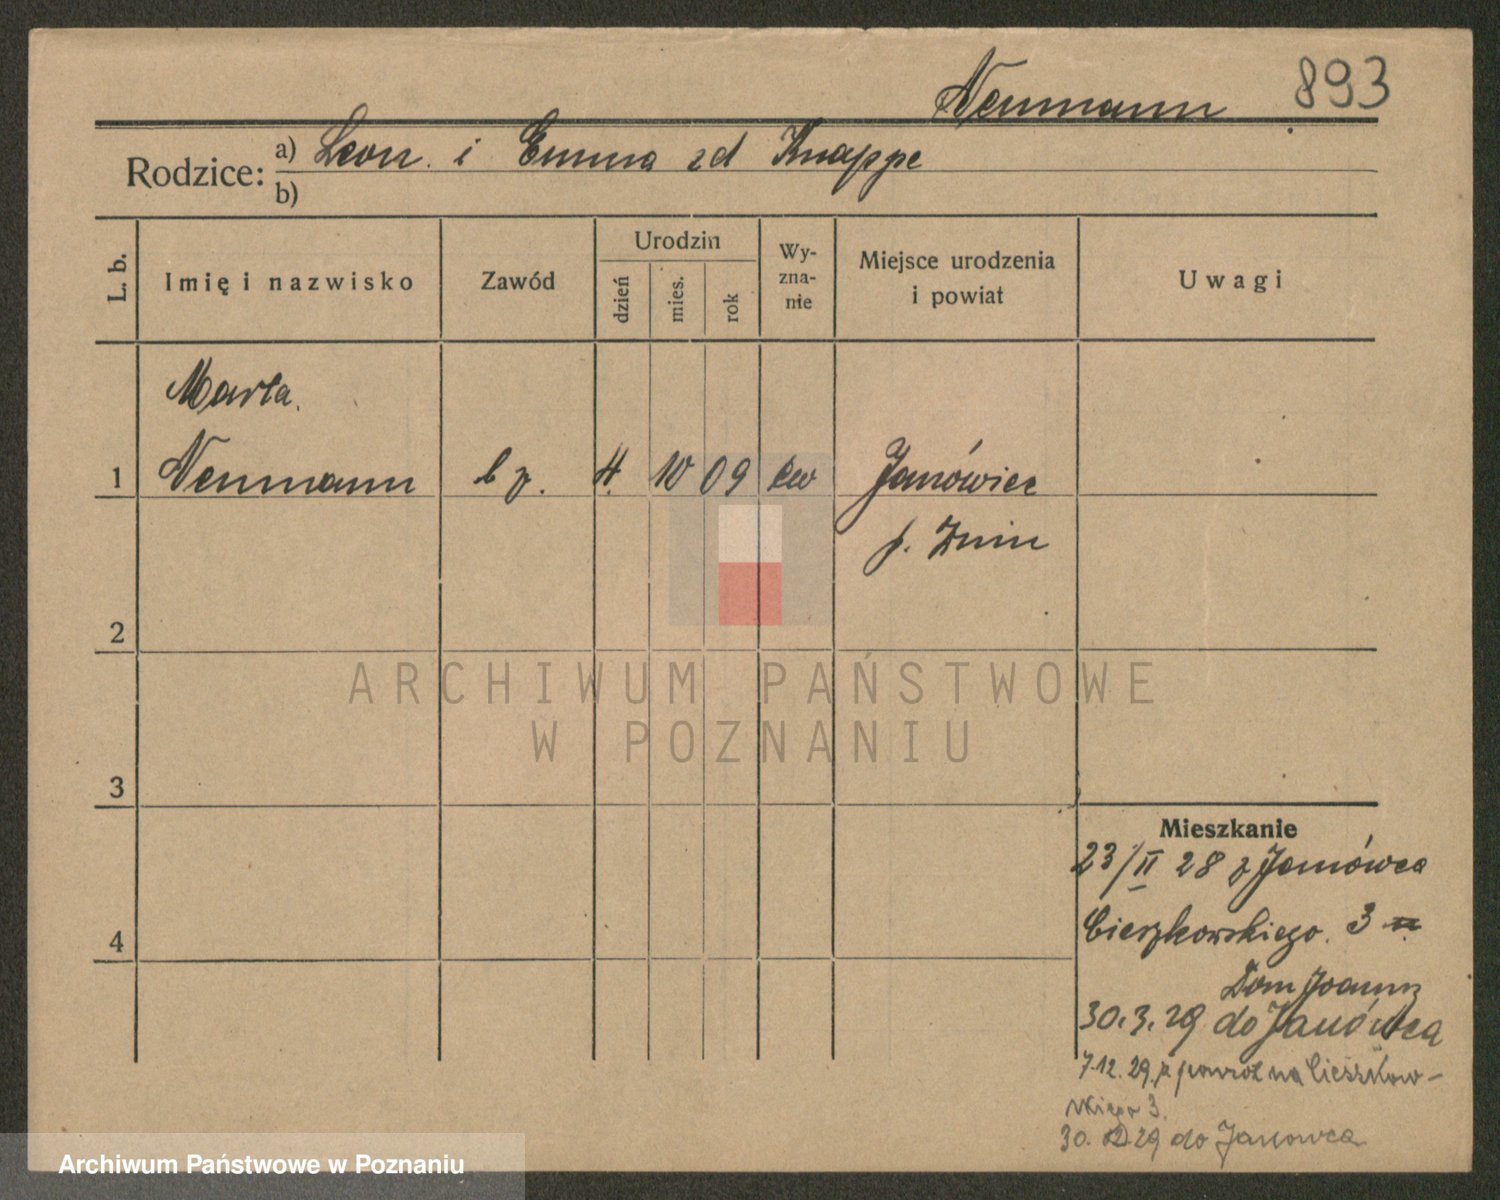 Neumann 893
Rodzice: a) Leon i Emma zd Knappe
b)
L. b.
Imię i nazwisko
Zawód
Urodzin
dzień
mies.
rok
Wy-
zna-
nie
Miejsce urodzenia
i powiat
Uwagi
Marta
1 Neumann b z. 4. 10 09 ew Janówiec
p. Żnin
2
3
4
Mieszkanie
23/II 28 z Janówca
Cieszkowskiego 3
Dom Joanny
30.3.29 do Janówca
7.12.29. z powrot na Cieszkow-
skiego 3.
30. 12 29 do Janowca
ARCHIWUM PAŃSTWOWE
W POZNANIU
Archiwum Państwowe w Poznaniu